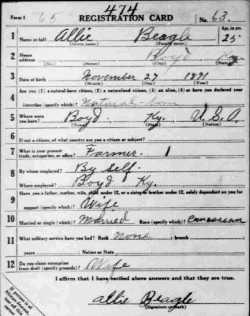 Form 1 65 474 REGISTRATION CARD No. 63
1 Name in full Allie Beagle Age, in yrs. 25
(Given name) (Family name)
2 Home address Boyd Ky
(No.) (Street) (City) (State)
3 Date of birth November 27 1891
(Month) (Day) (Year)
4 Are you (1) a natural-born citizen, (2) a naturalized citizen, (3) an alien, (4) or have you declared your
intention (specify which)? Natural-born
5 Where were you born? Boyd Ky. U.S.A
(Town) (State) (Nation)
6 If not a citizen, of what country are you a citizen or subject?
7 What is your present trade, occupation, or office? Farmer 1
8 By whom employed? By self.
Where employed? Boyd Ky.
9 Have you a father, mother, wife, child under 12, or a sister or brother under 12, solely dependent on you for
support (specify which)? Wife
10 Married or single (which)? Married Race (specify which)? Caucasian
11 What military service have you had? Rank None branch
years Nation or State
12 Do you claim exemption from draft (specify grounds)? Wife
I affirm that I have verified above answers and that they are true.
Allie Beagle
(Signature or mark)